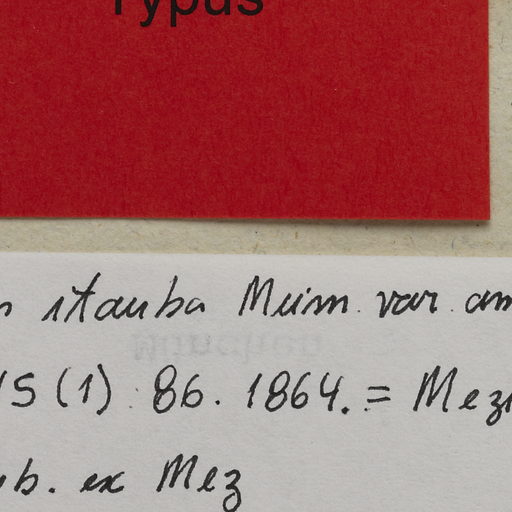 Typus
itauba Meissn. var. am
15 (1) : 86. 1864. = Mez
ub. ex Mez